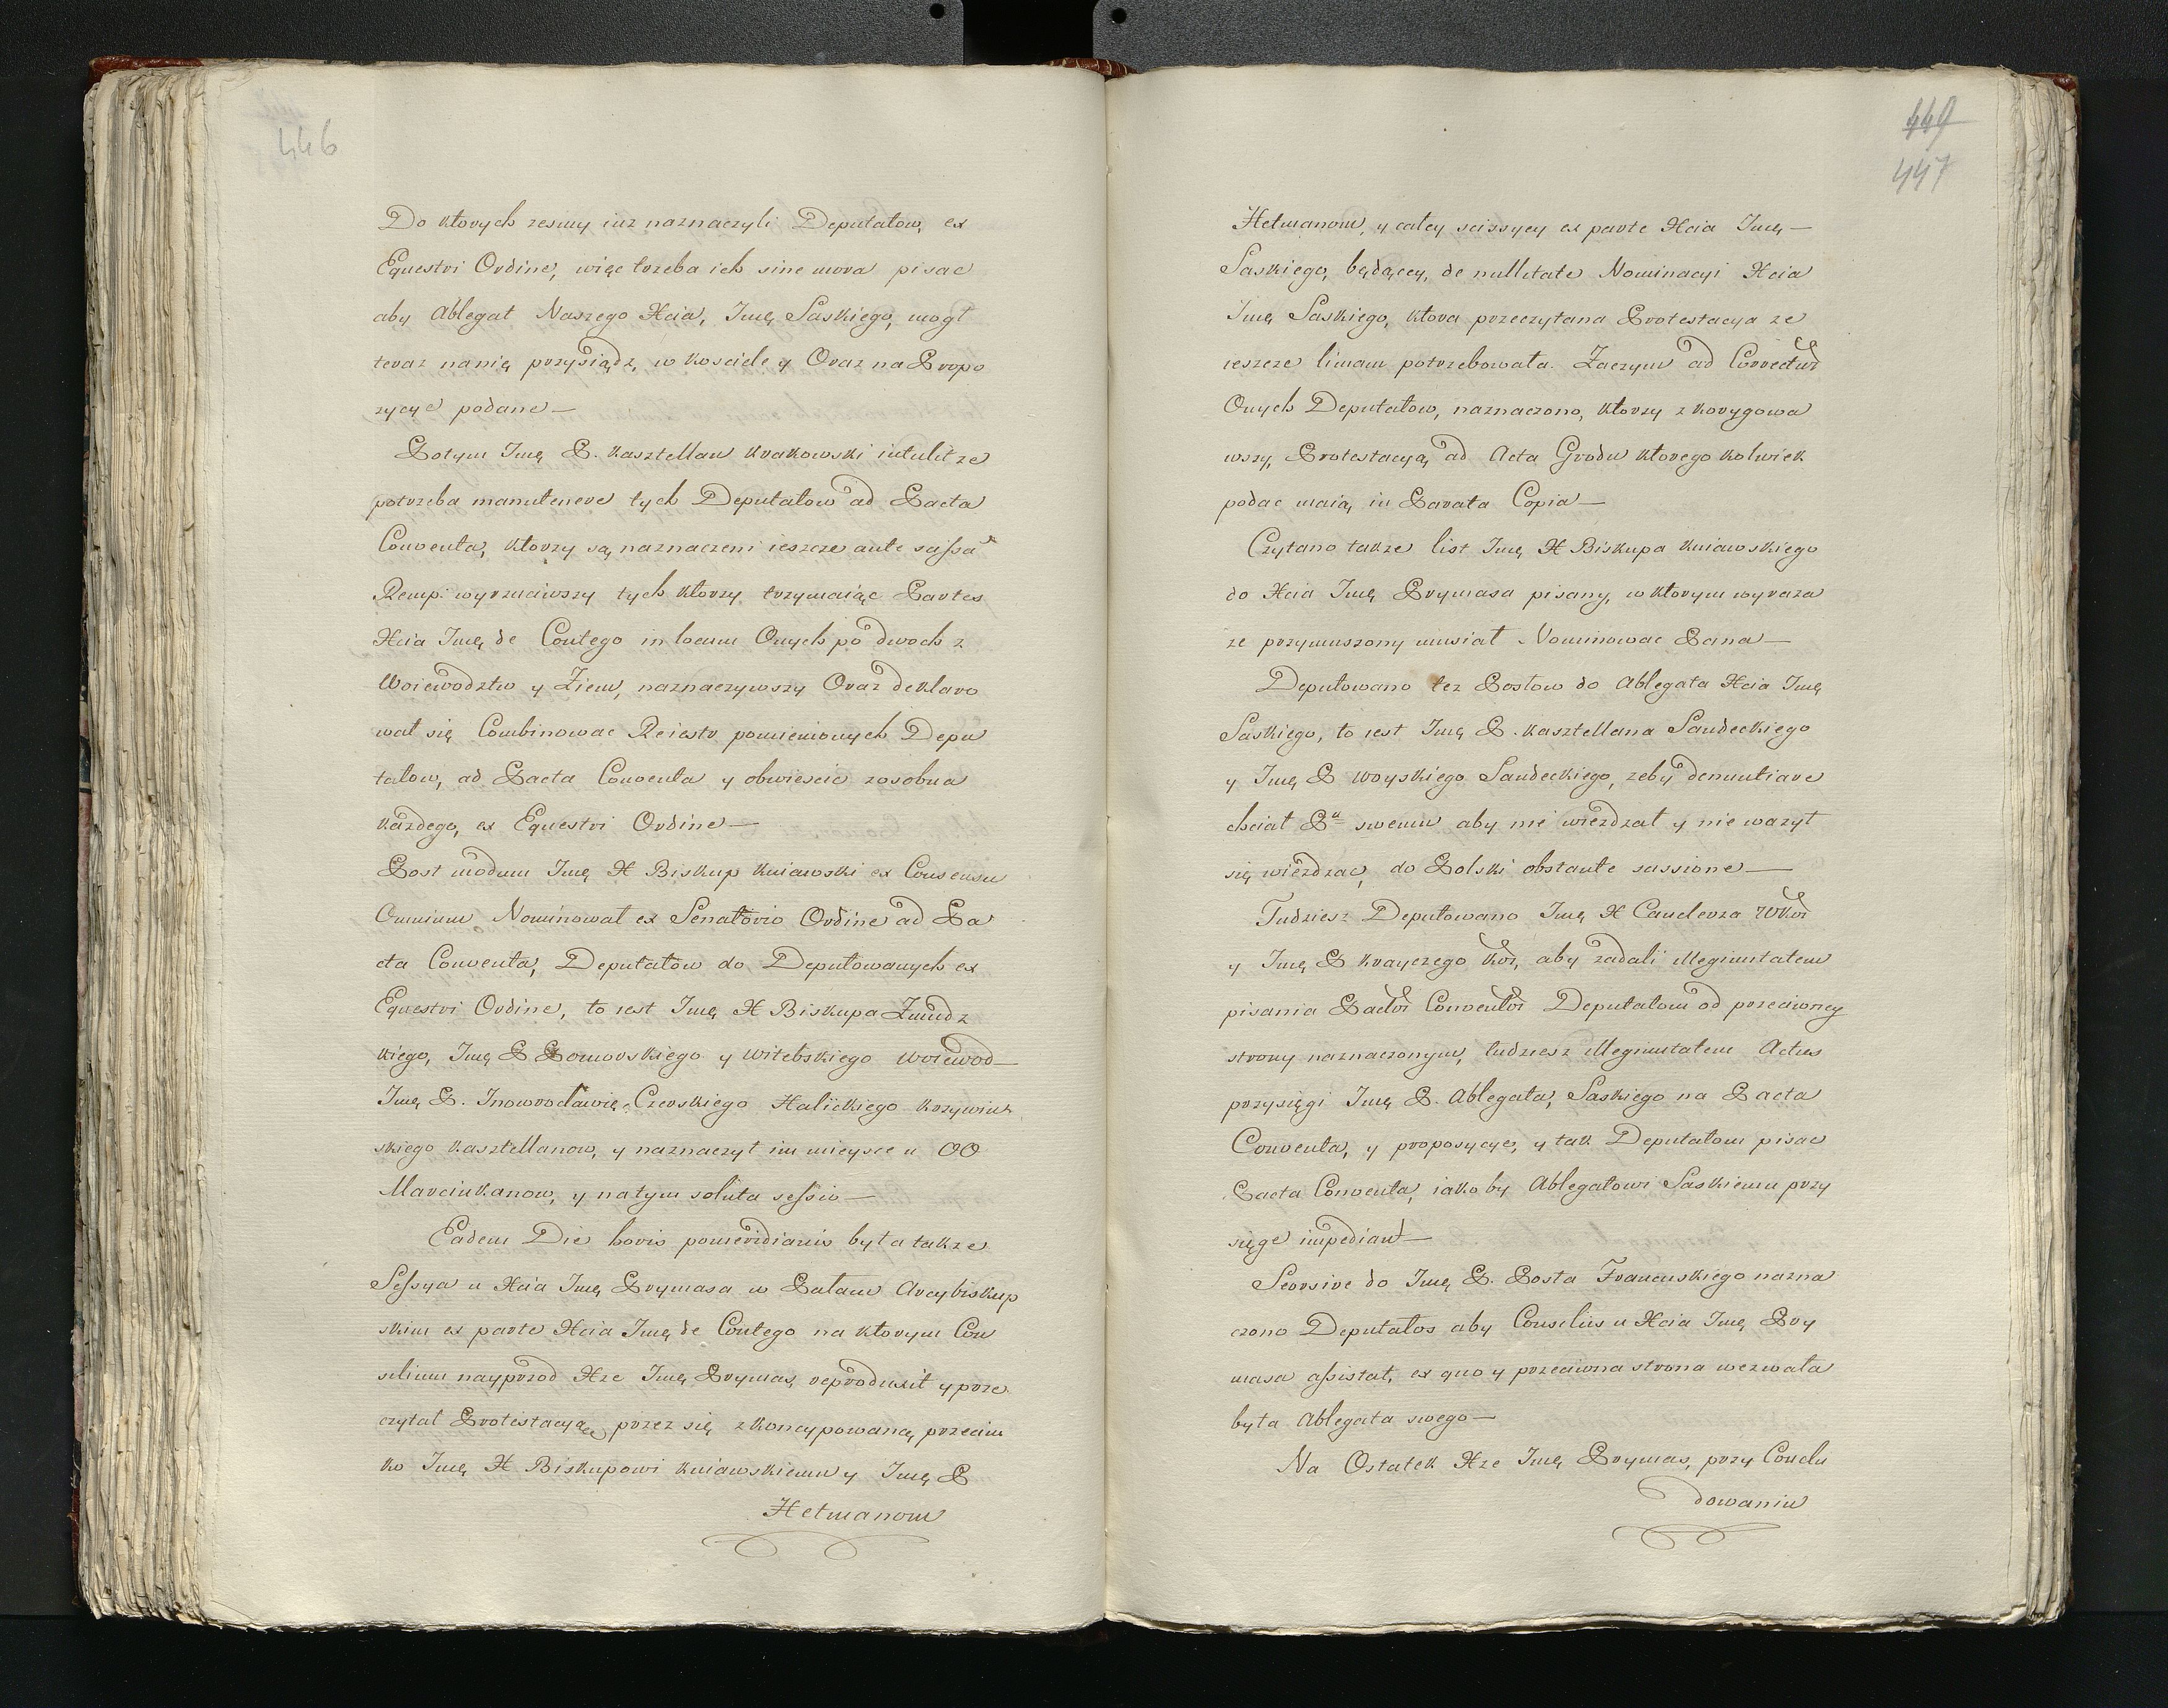 446
Do ktorych zesmy iuz naznaczyli Deputatow, ex
Equestri Ordine, więc trzeba ich sine mora pisac
aby Ablegat Naszego Xcia, Imę Saskiego, mogł
teraz nanię przysiądz, w kosciele y Oraz na Propo
zycye podane —
Potym Imę P. kasztellan krakowski intulit ze
potrzeba manutenere tych Deputatow ad Pacta
Conventa, ktorzy są naznaczeni ieszcze ante scissa
Remp. wyrzuciwszy tych ktorzy trzymaiąc Partes
Xcia Imę de Contego in locum Onych po dwoch z
Woiewodztw y Ziem, naznaczywszy Oraz deklaro
wał się Combinowac Reiestr pomienionych Depu
tatow, ad Pacta Conventa y obwiescic zosobna
kazdego, ex Equestri Ordine —
Post modum Imę X Biskup kuiawski ex Consensu
Omnium Nominowal ex Senatorio Ordine ad Pa
cta Conventa, Deputatow do Deputowanych ex
Equestri Ordine, to iest Imę X Biskupa Zmudz
kiego, Imę P Pomorskiego y witebskiego woiewod —
Imę P. Inowrocławię. Czerskiego Halickiego krzywin
skiego kasztellanow, y naznaczył im mieysce u OO
Marcinkanow, y natym soluta sessio —
Eadem Die horis pomeridianis była takze
Sessya u Xcia Imę Prymasa w Pałacu Arcybiskup
skim ex parte Xcia Imę de Contego na ktorym Con
silium nayprzod Xze Imę Prymas, reproduxit y prze
czytał Protestacyą przez się zkoncypowaną przeciw
ko Imę X Biskupowi kuiawskiemu y Imę P
Hetmanom
449
447
Hetmanom, y całey scissyey ex parte Xcia Imę —
Saskiego, będącey, de nullitate Nominacyi Xcia
Imę Saskiego, ktora przeczytana Protestacya ze
ieszcze limam potrzebowała. Zaczym ad Correctur
Onych Deputatow, naznaczono, ktorzy zkorygowa
wszy, Protestacyą, ad Acta Grodu ktorego kolwiek
podac maią, in Parata Copia —
Czytano takze list Imę X Biskupa kuiawskiego
do Xcia Imę Prymasa pisany, w ktorym wyraza
ze przymuszony musiał Nominowac Pana —
Deputowano tez Posłow do Ablegata Xcia Imę
Saskiego, to iest Imę P. kasztellana Sandeckiego
y Imę P woyskiego Sandeckiego, zeby denuntiare
chciał Pu swemu aby nie wiezdzał y nie wazył
się wiezdzac, do Polski obstante scissione —
Tudziesz Deputowano Imę X Canclerza WKor
y Imę P krayczego kor, aby zadali Megimitatem
pisania Pactor Conventor Deputatom od przeciwney
strony naznaczonym, tudziesz Megimitatem Actus
przysięgi Imę P. Ablegata, Saskiego na Pacta
Conventa, y proposycye, y tak Deputatom pisac
Pacta Conventa, iako by Ablegatowi Saskiemu przy
sięge impediant —
Seorsive do Imę P. Posła Francuskiego nazna
czono Deputatos aby Conselius u Xcia Imę Pry
masa assistał, ex quo y przeciwna strona wezwała
była Ablegata swego —
Na Ostatek Xze Imę Prymas, przy Conclu
dowaniu